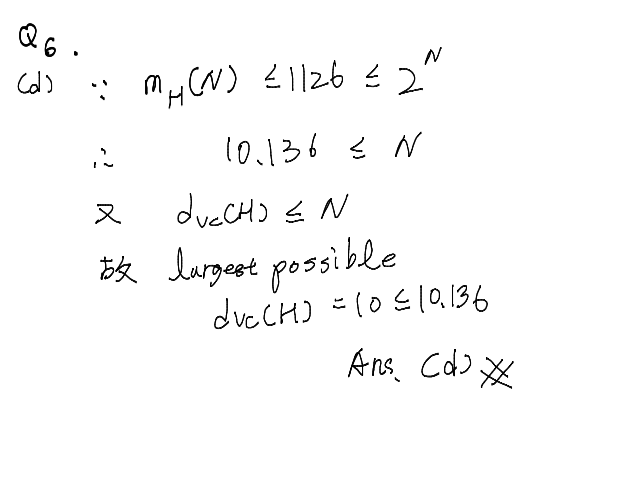 Q6.
(d) ∵ m_H(N) ≤ 1126 ≤ 2^N
∴ 10.136 ≤ N
又 dvc(H) ≤ N
故 largest possible
dvc(H) = 10 ≤ 10.136
Ans. (d) ※